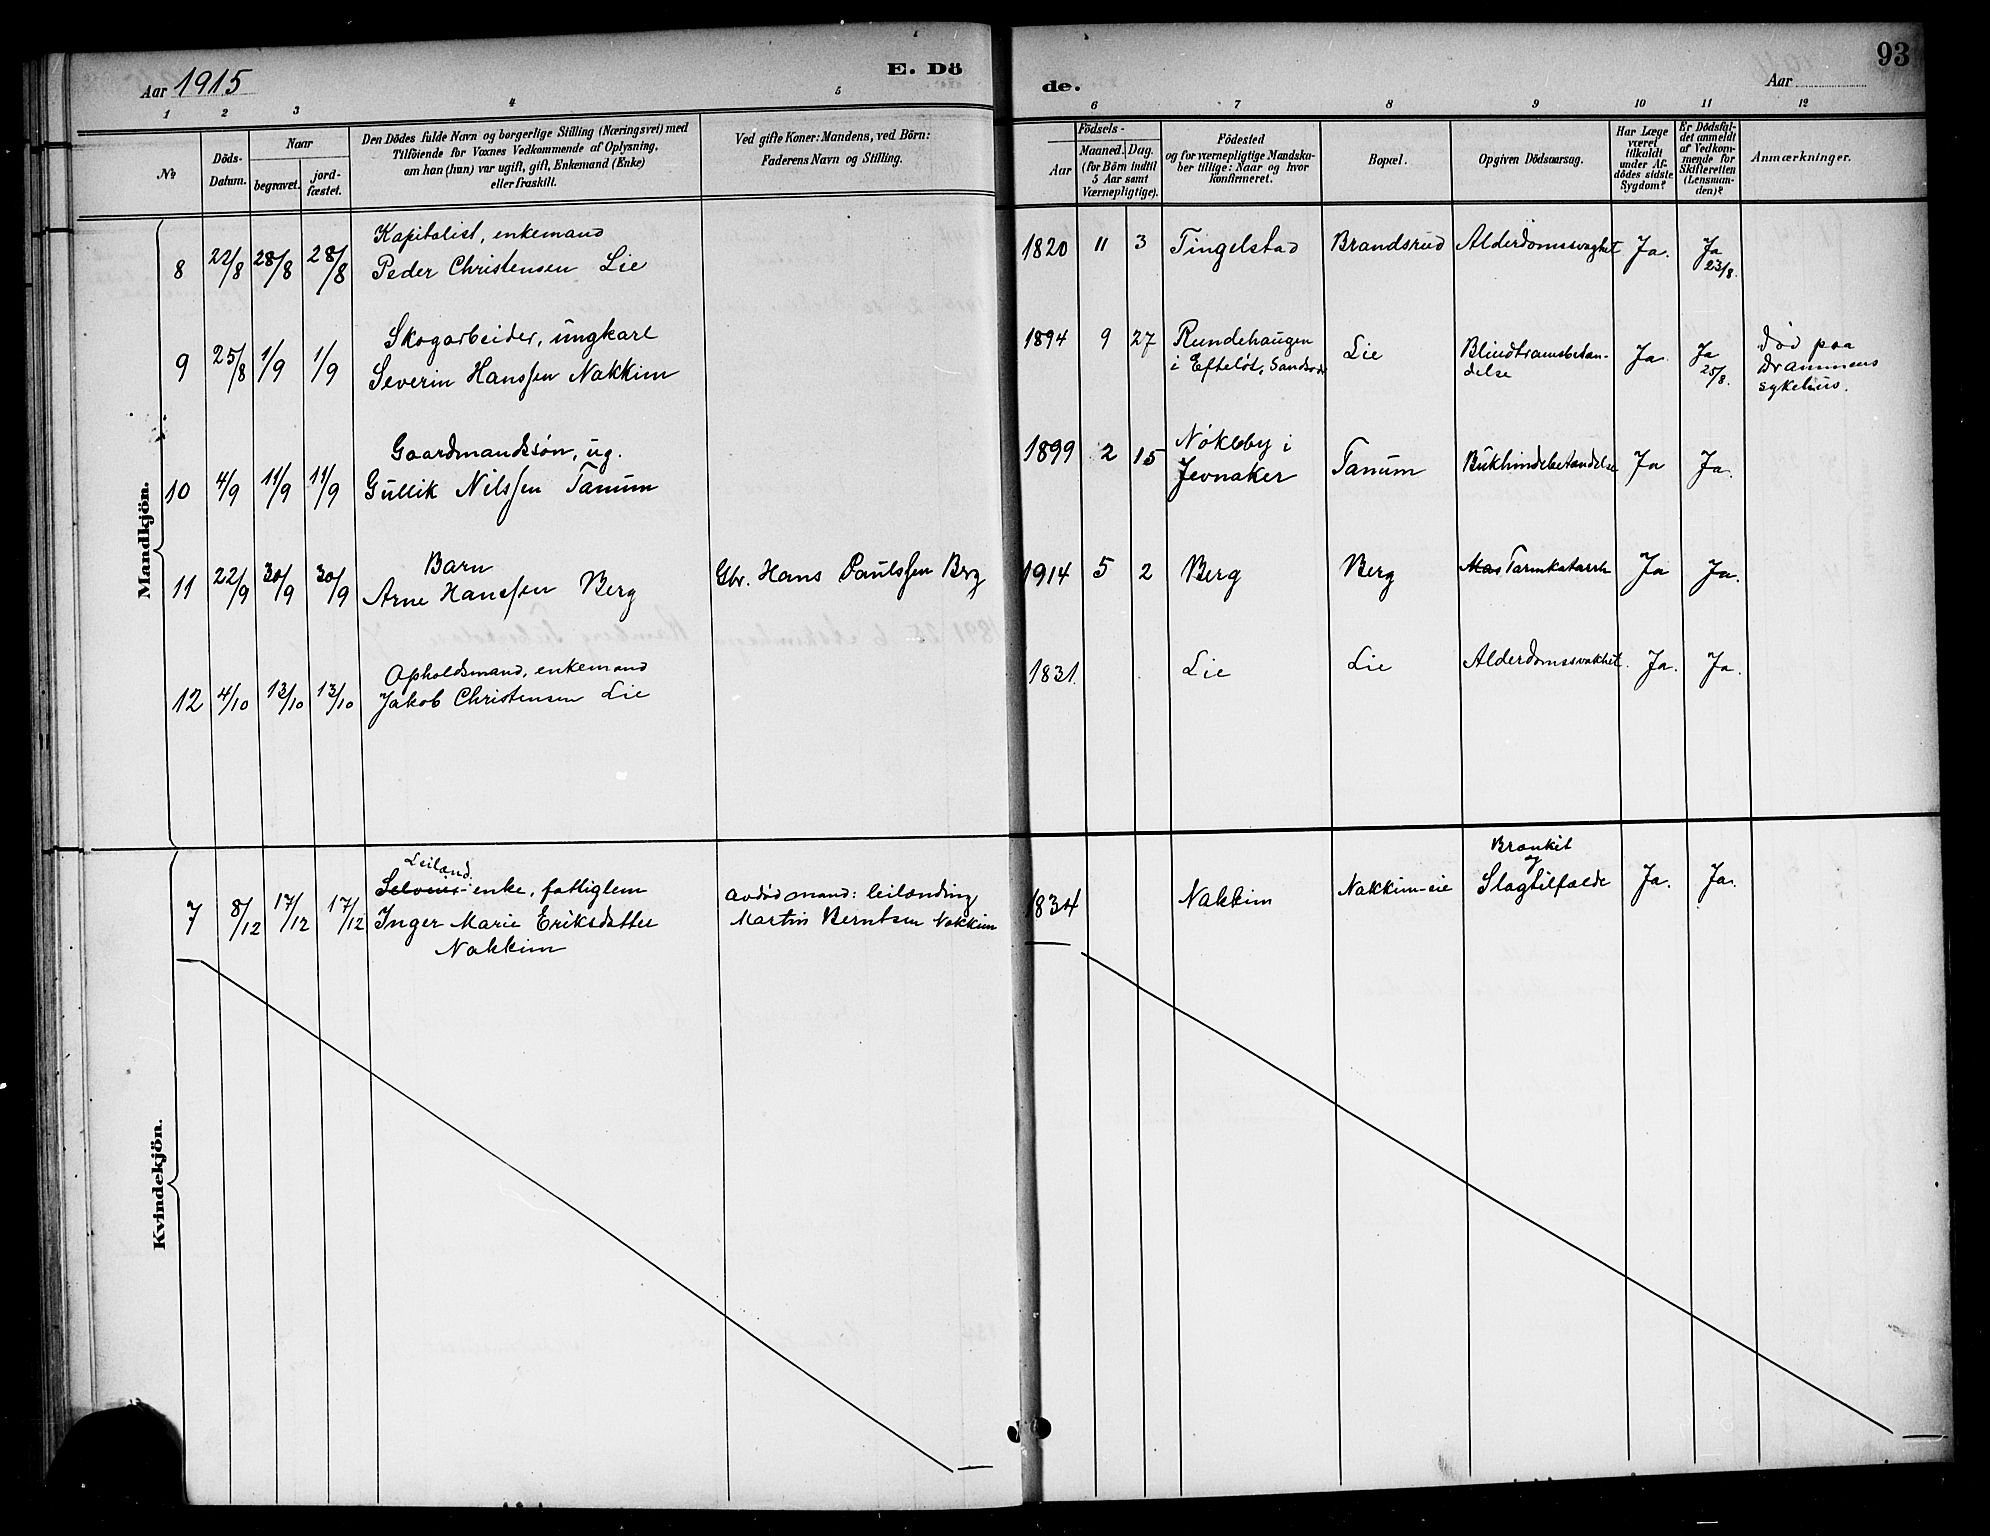 Aar 1915
E. Dö
de.
93
Aar
1 2 3 4 5 6 7 8 9 10 11 12
№
Döds-
Datum.
Naar
begravet.
jord-
fæstet.
Den Dödes fulde Navn og borgerlige Stilling (Næringsvei) med
Tilföiende for Voxnes Vedkommende af Oplysning,
om han (hun) var ugift, gift, Enkemand (Enke)
eller fraskilt.
Ved gifte Koner: Mandens, ved Börn:
Faderens Navn og Stilling.
Födsels-
Aar
Maaned. Dag.
(for Börn indtil
5 Aar samt
Værnepligtige).
Födested
og for værnepligtige Mandska-
ber tillige: Naar og hvor
konfirmeret.
Bopæl.
Opgiven Dödsaarsag.
Har Læge
været
tilkaldt
under Af-
dödes sidste
Sygdom?
Er Dödsfal-
det anmeldt
af Vedkom-
mende for
Skifteretten
(Lensman-
den)?
Anmærkninger.
Mandkjön.
8 22/8 28/8 28/8 Kapitalist, enkemand
Peder Christensen Lie
1820 11 3 Tingelstad Brandsrud Alderdomssvaghet Ja. Ja
23/8.
9 25/8 1/9 1/9 Skogarbeider, ungkarl
Severin Hanssen Nakkim
1894 9 27 Rundehaugen
i Efteløt, Sandsvær
Lie Blindtarmsbetæn-
delse
Ja Ja
25/8.
død paa
Drammens
sykehus.
10 4/9 11/9 11/9 Gaardmandssøn, ug.
Gullik Nilssen Tanum
1899 2 15 Nøkleby i
Jevnaker
Tanum Bukhindebetændelse Ja Ja.
11 22/9 30/9 30/9 Barn
Arne Hanssen Berg
Gbr. Hans Paulssen Berg
1914 5 2 Berg Berg Mas Tarmkatarrh Ja Ja.
12 4/10 13/10 13/10 Opholdsmand, enkemand
Jakob Christensen Lie
1831. Lie Lie Alderdomssvakhet. Ja. Ja.
Kvindekjön.
7 8/12 17/12 17/12 Leiland.
enke, fattiglem
Inger Marie Eriksdatter
Nakkim
avdød mand: leilænding
Martin Berntsen Nakkim
1834 Nakkim Nakkim-eie Bronkit
og
Slagtilfælde
Ja. Ja.